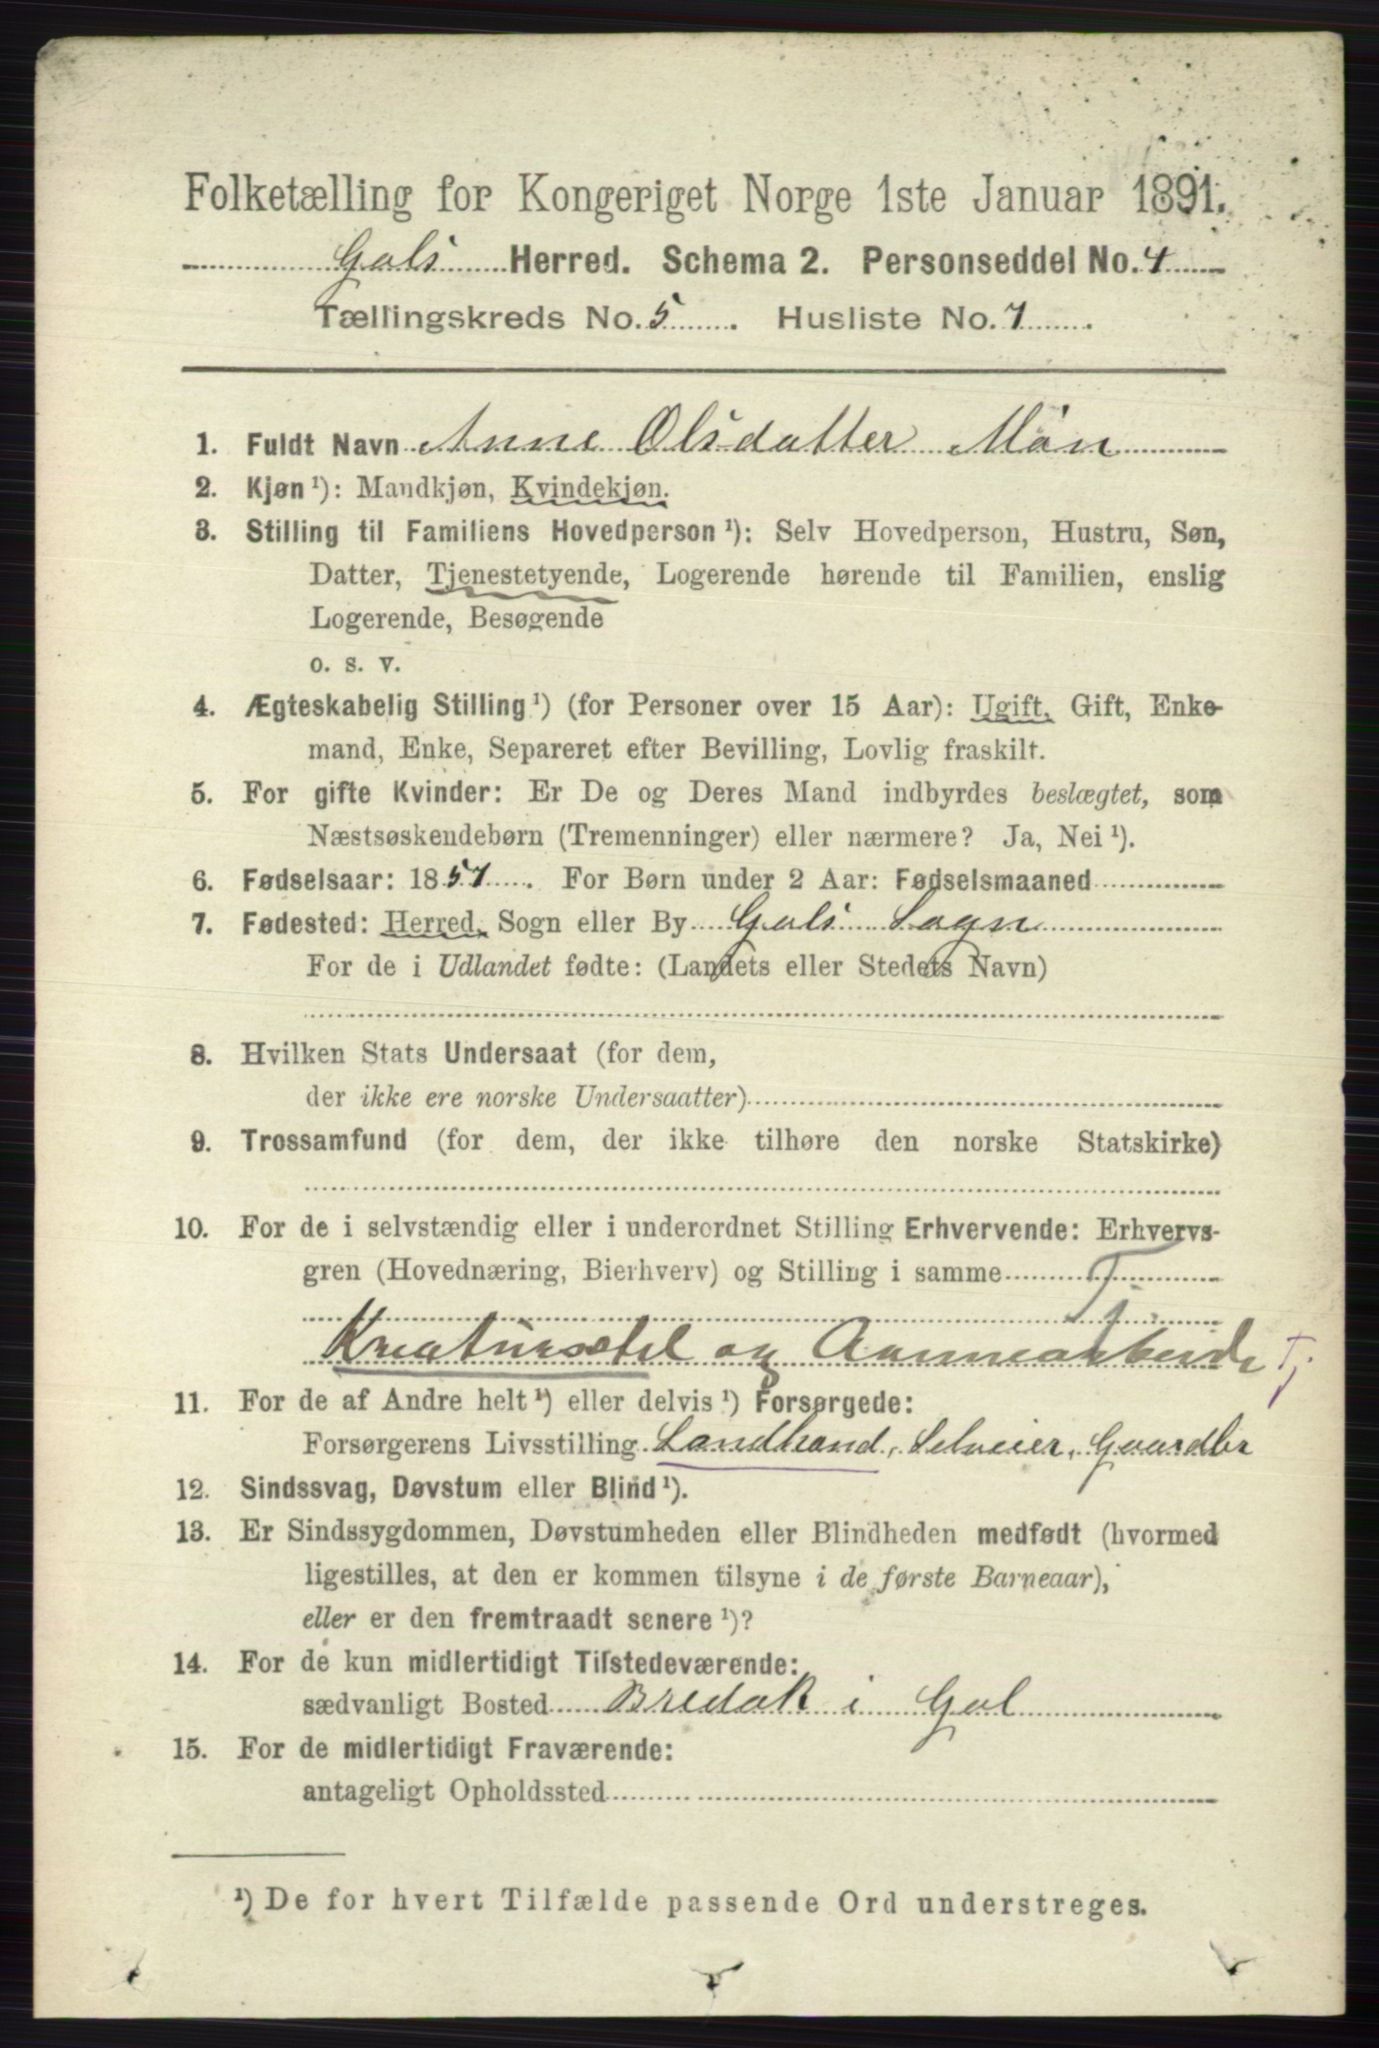 Folketælling for Kongeriget Norge 1ste Januar 1891.
Gols Herred. Schema 2. Personseddel No. 4
Tællingskreds No. 5. Husliste No. 7.
1. Fuldt Navn Anne Olsdatter Møn
2. Kjøn ¹): Mandkjøn, Kvindekjøn.
3. Stilling til Familiens Hovedperson ¹): Selv Hovedperson, Hustru, Søn,
Datter, Tjenestetyende, Logerende hørende til Familien, enslig
Logerende, Besøgende
o. s. v.
4. Ægteskabelig Stilling ¹) (for Personer over 15 Aar): Ugift, Gift, Enke-
mand, Enke, Separeret efter Bevilling, Lovlig fraskilt.
5. For gifte Kvinder: Er De og Deres Mand indbyrdes beslægtet, som
Næstsøskendebørn (Tremenninger) eller nærmere? Ja, Nei ¹).
6. Fødselsaar: 1857. For Børn under 2 Aar: Fødselsmaaned
7. Fødested: Herred, Sogn eller By Gols Sogn
For de i Udlandet fødte: (Landets eller Stedets Navn)
8. Hvilken Stats Undersaat (for dem,
der ikke ere norske Undersaatter)
9. Trossamfund (for dem, der ikke tilhøre den norske Statskirke)
10. For de i selvstændig eller i underordnet Stilling Erhvervende: Erhvervs-
gren (Hovednæring, Bierhverv) og Stilling i samme Tj.
Kreaturstel og Aannearbeide Tj.
11. For de af Andre helt ¹) eller delvis ¹) Forsørgede:
Forsørgerens Livsstilling Landhand, Selveier, Gaardbr
12. Sindssvag, Døvstum eller Blind ¹).
13. Er Sindssygdommen, Døvstumheden eller Blindheden medfødt (hvormed
ligestilles, at den er kommen tilsyne i de første Barneaar),
eller er den fremtraadt senere ¹)?
14. For de kun midlertidigt Tilstedeværende:
sædvanligt Bosted Bredok i Gol
15. For de midlertidigt Fraværende:
antageligt Opholdssted
¹) De for hvert Tilfælde passende Ord understreges.